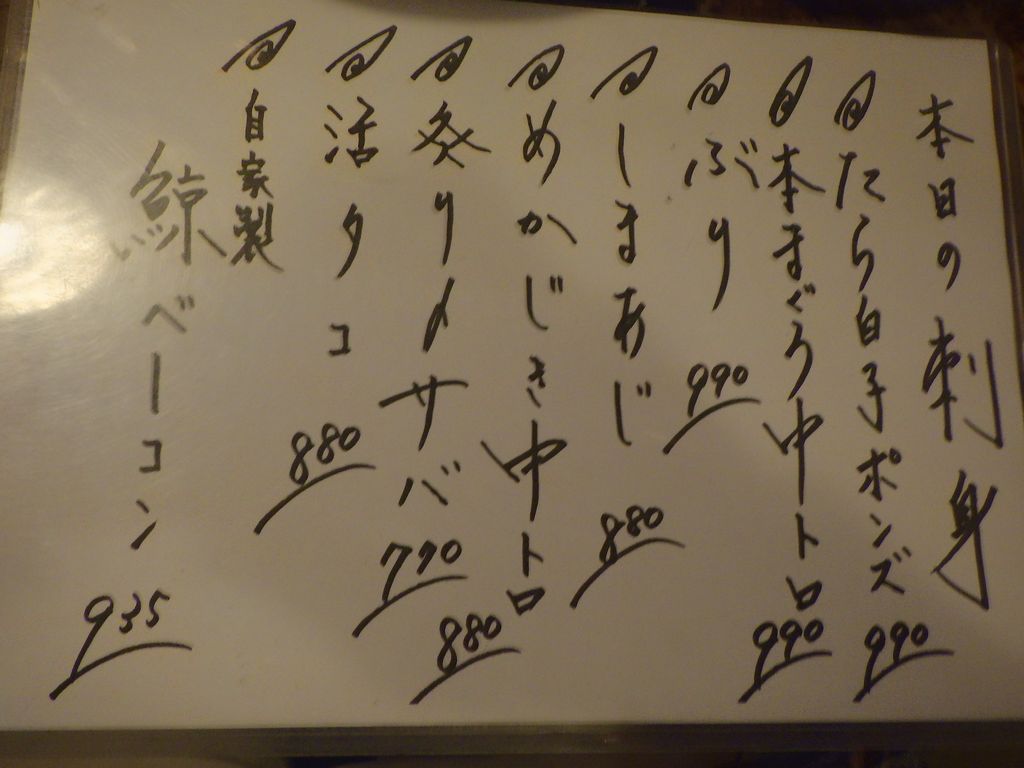 本日の刺身
たら白子ポンズ 990
本まぐろ中トロ 990
ぶり 990
しまあじ 880
めかじき中トロ 880
炙り〆サバ 770
活タコ 880
自家製
鯨ベーコン 935